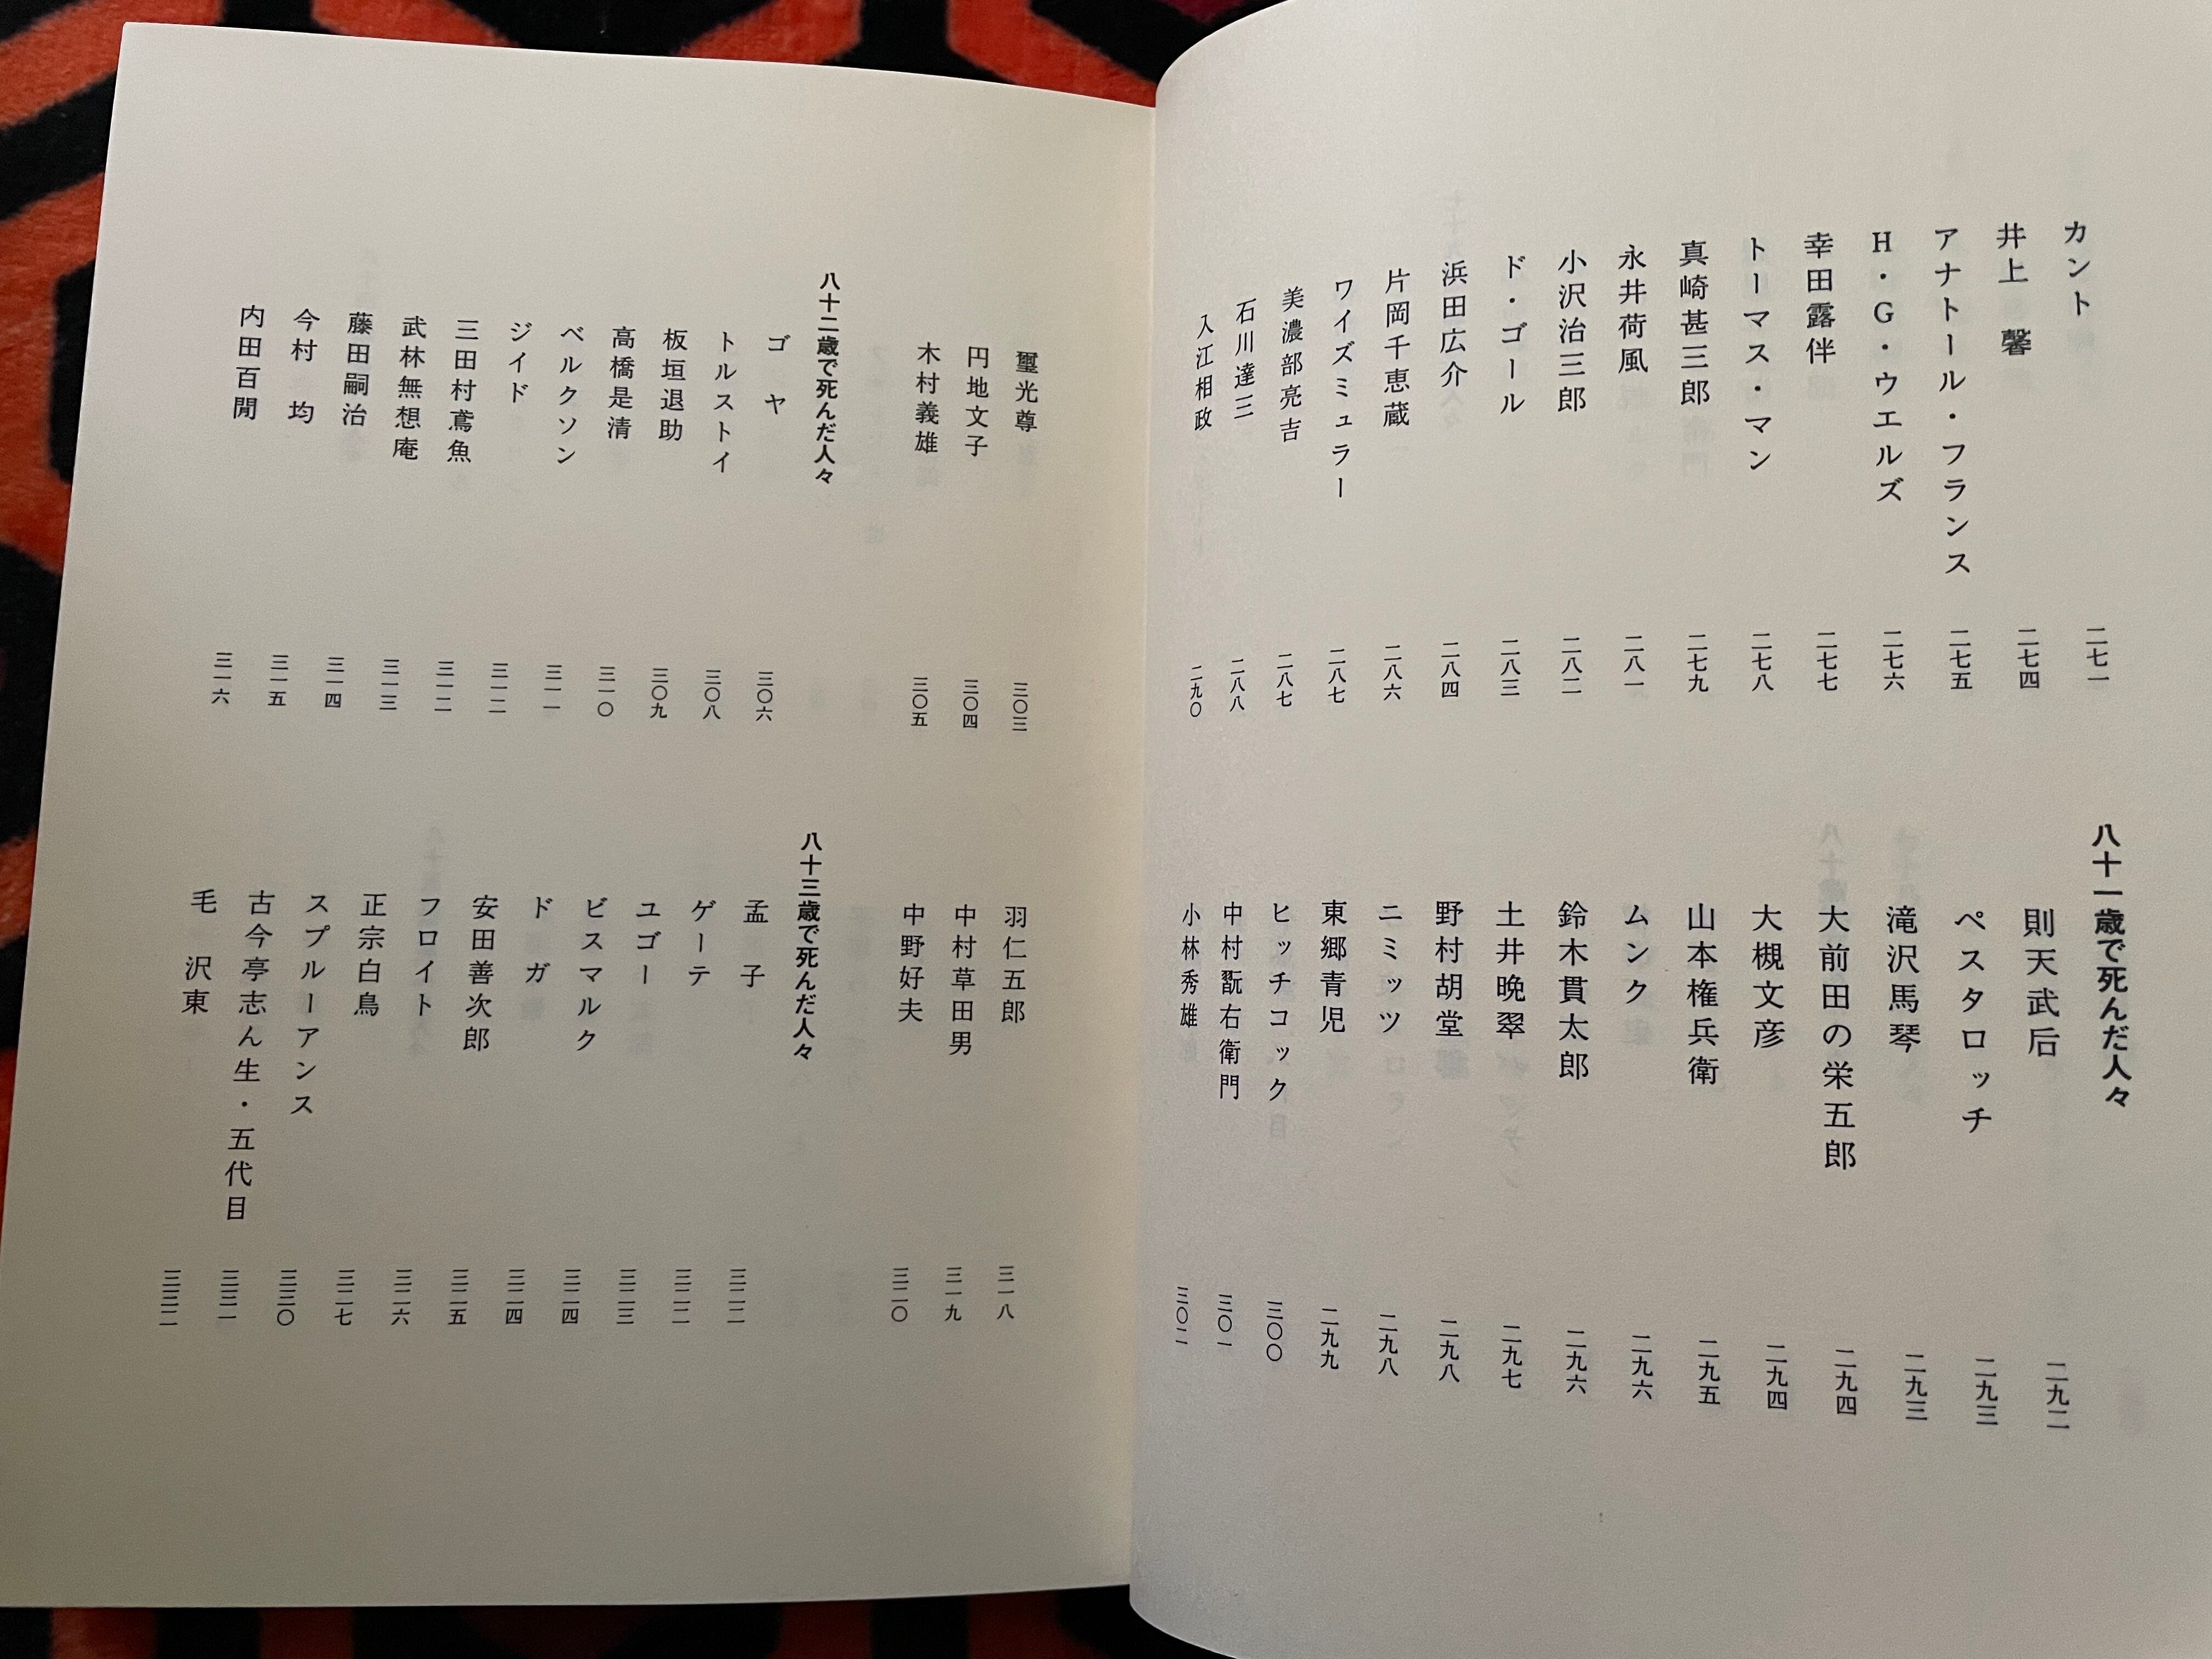 カント 二七一
井上 馨 二七四
アナトール・フランス 二七五
H・G・ウエルズ 二七六
幸田露伴 二七七
トーマス・マン 二七八
真崎甚三郎 二七九
永井荷風 二八一
小沢治三郎 二八二
ド・ゴール 二八三
浜田広介 二八四
片岡千恵蔵 二八六
ワイズミュラー 二八七
美濃部亮吉 二八七
石川達三 二八八
入江相政 二九〇
八十一歳で死んだ人々
則天武后 二九二
ペスタロッチ 二九三
滝沢馬琴 二九三
大前田の栄五郎 二九四
大槻文彦 二九四
山本権兵衛 二九五
ムンク 二九六
鈴木貫太郎 二九六
土井晩翠 二九七
野村胡堂 二九八
ニミッツ 二九八
東郷青児 二九九
ヒッチコック 三〇〇
中村翫右衛門 三〇一
小林秀雄 三〇二
璽光尊 三〇三
円地文子 三〇四
木村義雄 三〇五
八十二歳で死んだ人々
ゴヤ 三〇六
トルストイ 三〇八
板垣退助 三〇九
高橋是清 三一〇
ベルクソン 三一一
ジイド 三一二
三田村鳶魚 三一二
武林無想庵 三一三
藤田嗣治 三一四
今村 均 三一五
内田百閒 三一六
羽仁五郎 三一八
中村草田男 三一九
中野好夫 三二〇
八十三歳で死んだ人々
孟子 三二二
ゲーテ 三二二
ユゴー 三二三
ビスマルク 三二四
ドガ 三二四
安田善次郎 三二五
フロイト 三二六
正宗白鳥 三二七
スプルーアンス 三三〇
古今亭志ん生・五代目 三三一
毛 沢東 三三二